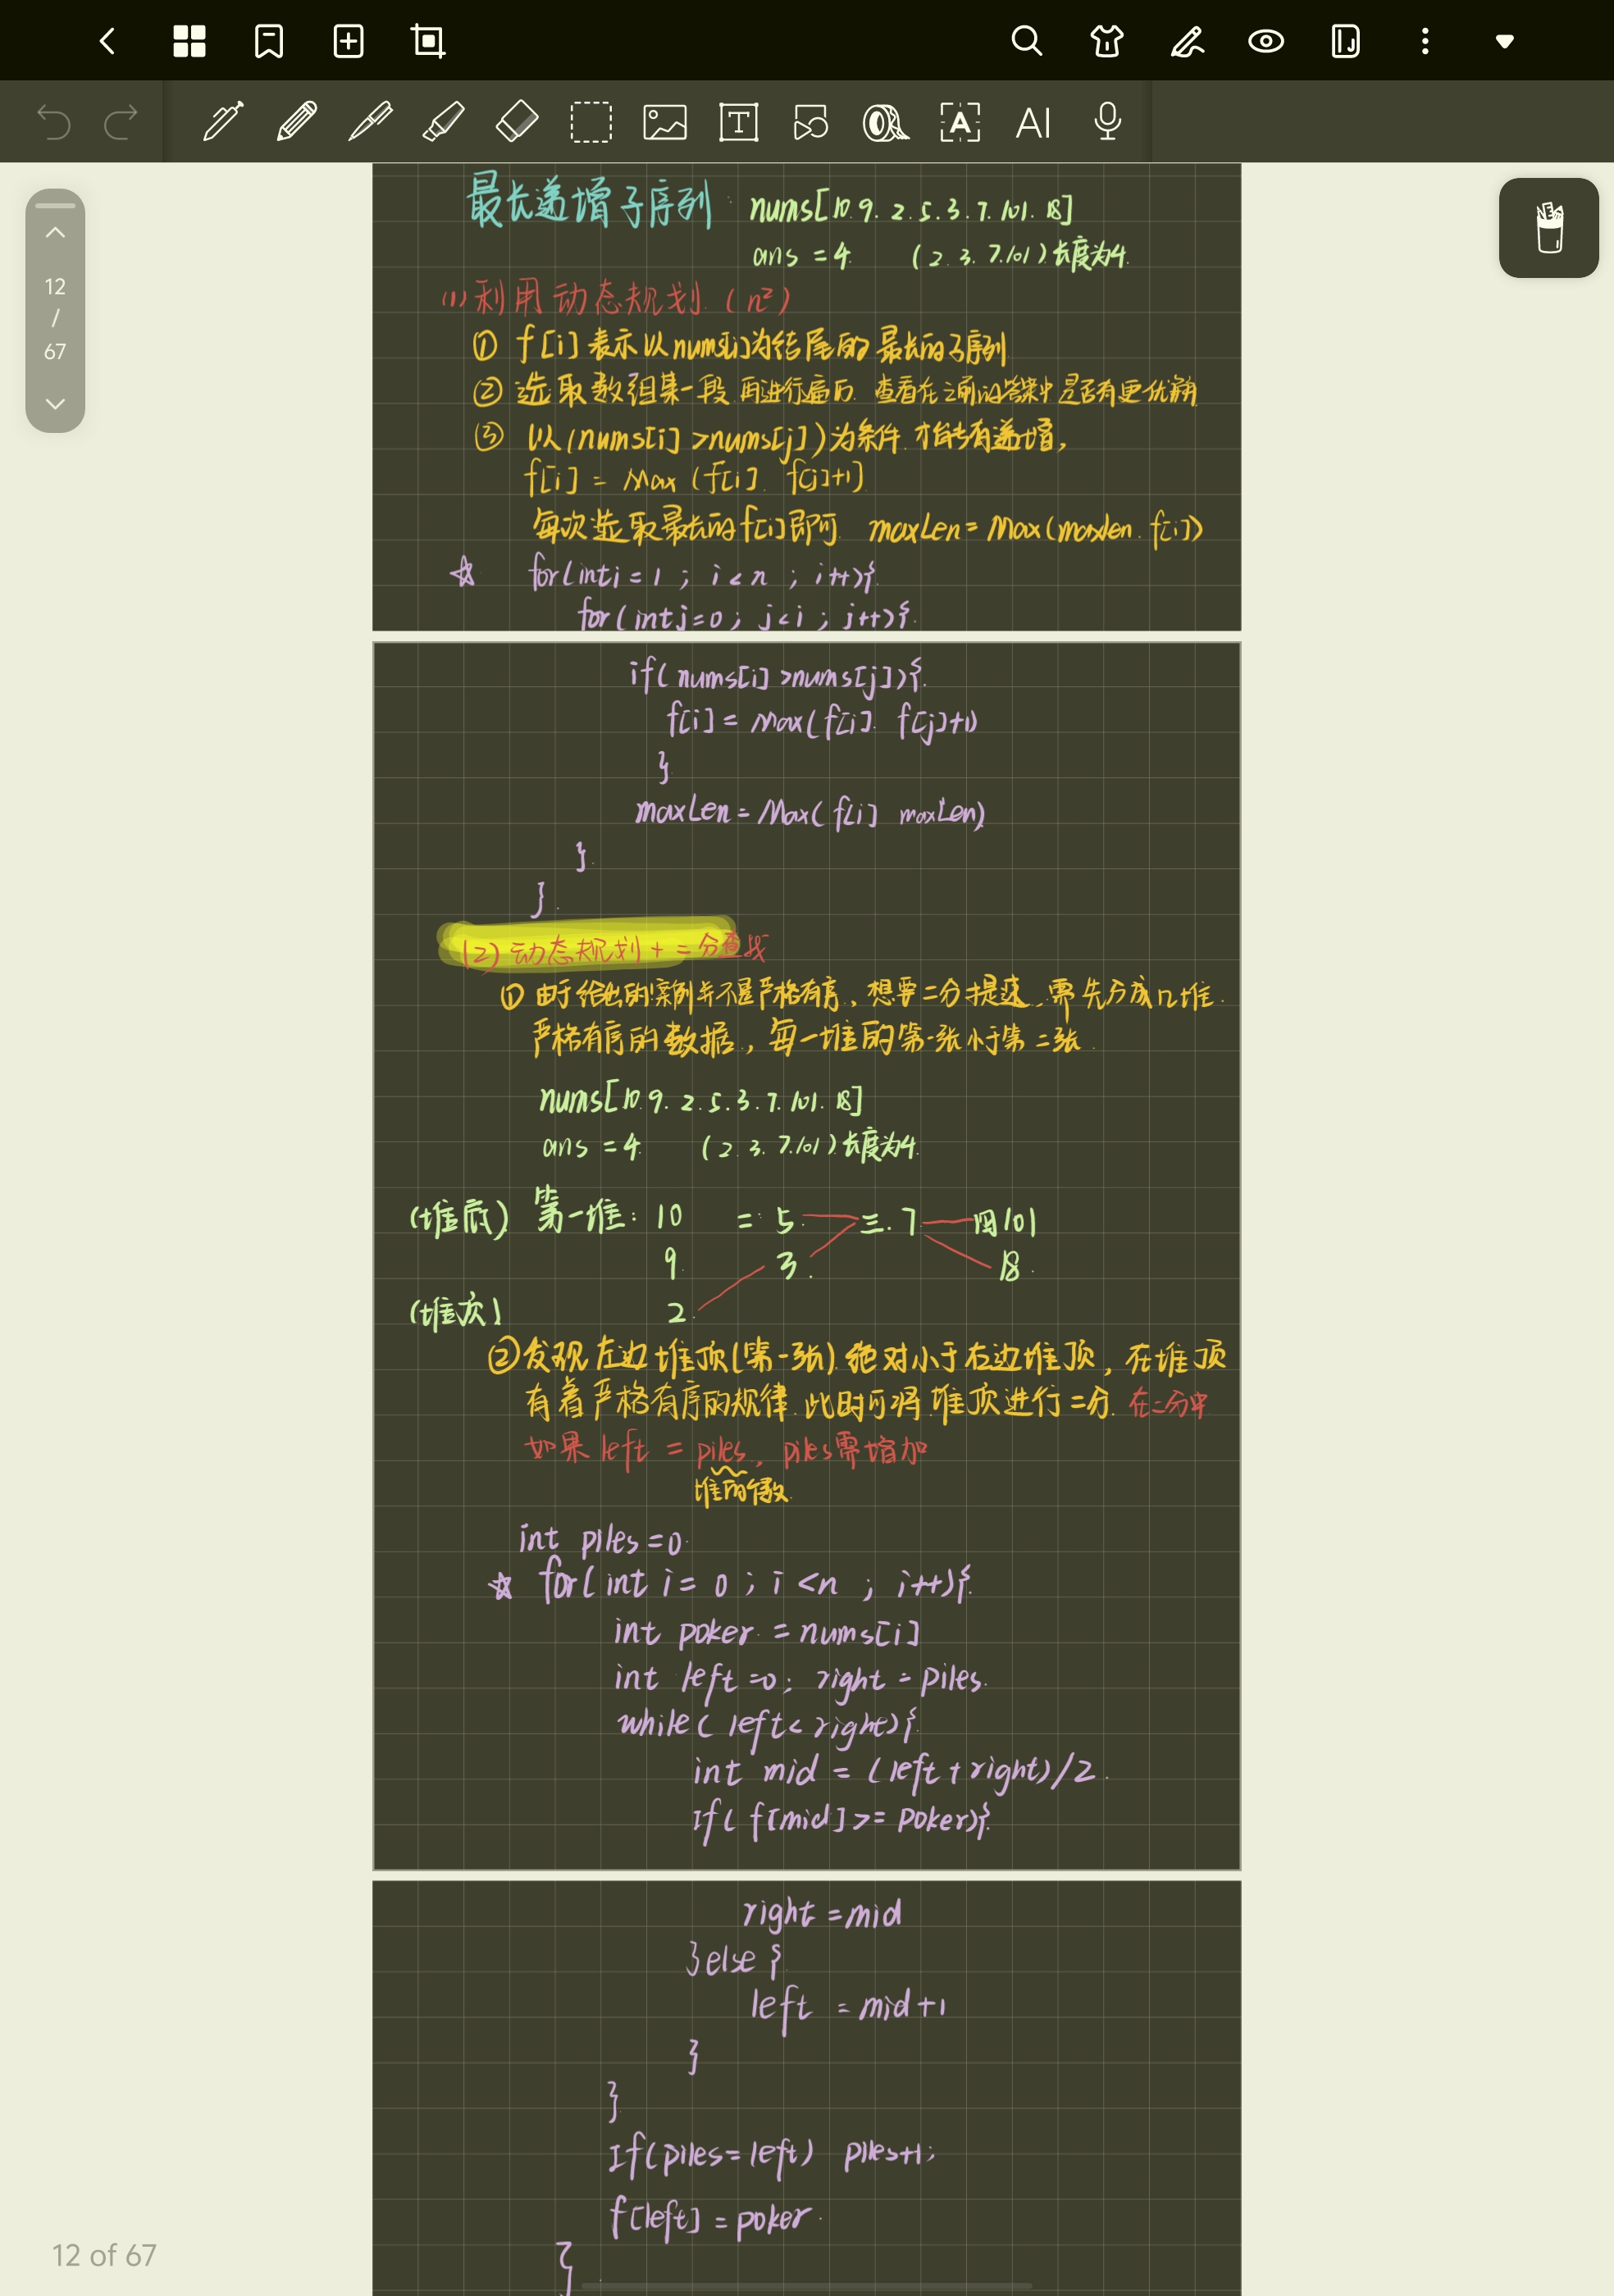 12
/
67
最长递增子序列 nums[10.9.2.5.3.7.101.18]
ans = 4 (2.3.7.101)长度为4.
(1)利用动态规划.(n²)
① f[i]表示以nums[i]为结尾的最长的子序列
② 选取数组某一段 再进行遍历. 查看在之前的答案中是否有更优解
③ 以(nums[i]>nums[j])为条件.才能有递增,
f[i] = Max (f[i]. f[j]+1)
每次选取最长的f[i]即可. maxLen = Max(maxLen.f[i])
☆ for(int i = 1 ; i < n ; i++){
for(int j=0; j<i ; j++){
if(nums[i]>nums[j]){
f[i] = Max(f[i]. f[j]+1)
}
maxLen = Max( f[i] maxLen)
}
}
(2)动态规划+二分查找
① 由于给出的案例并不是严格有序,想要二分提速.需先分成几堆.
严格有序的数据,每一堆的第一张小于第二张.
nums[10.9.2.5.3.7.101.18]
ans = 4. (2.3.7.101)长度为4.
(堆底) 第一堆: 10 二 5 三.7 四101
9. 3. 18.
(堆顶) 2.
②发现左边堆顶(第一张)绝对小于右边堆顶,在堆顶
有着严格有序的规律.此时可将堆顶进行二分.在二分中
如果left = piles, piles需增加
堆的个数.
int piles=0
☆ for( int i= 0 ; i <n ; i++){
int poker = nums[i]
int left =0; right = piles.
while( left < right){
int mid = (left + right)/2.
If( f[mid] >= poker){
right = mid
}else{
left = mid+1
}
}
If(piles=left) piles+1;
f[left] = poker
}
12 of 67